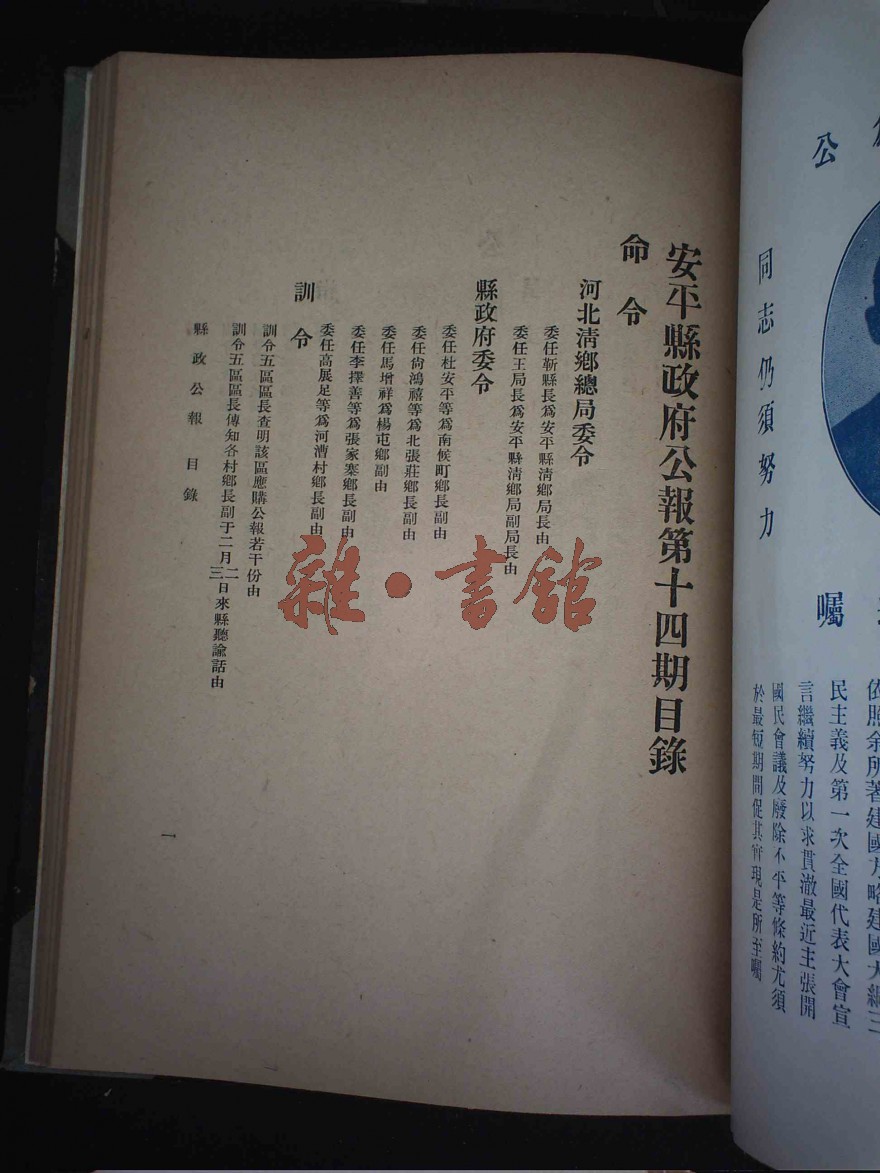 公
同志仍須努力
囑
依照余所著建國方略建國大綱三
民主義及第一次全國代表大會宣
言繼續努力以求貫澈最近主張開
國民會議及廢除不平等條約尤須
於最短期間促其實現是所至囑
安平縣政府公報第十四期目錄
命令
河北淸鄉總局委令
委任靳縣長爲安平縣淸鄉局長由
委任王局長爲安平縣淸鄉局副局長由
縣政府委令
委任杜安平等爲南候町鄉長副由
委任尙鴻禧等爲北張莊鄉長副由
委任馬增祥爲楊屯鄉副由
委任李擇善等爲張家寨鄉長副由
委任高展足等爲河漕村鄉長副由
訓令
訓令五區區長查明該區應購公報若干份由
訓令五區區長傳知各村鄉長副于二月二三日來縣聽諭話由
縣政公報 目錄
一
雜·書館